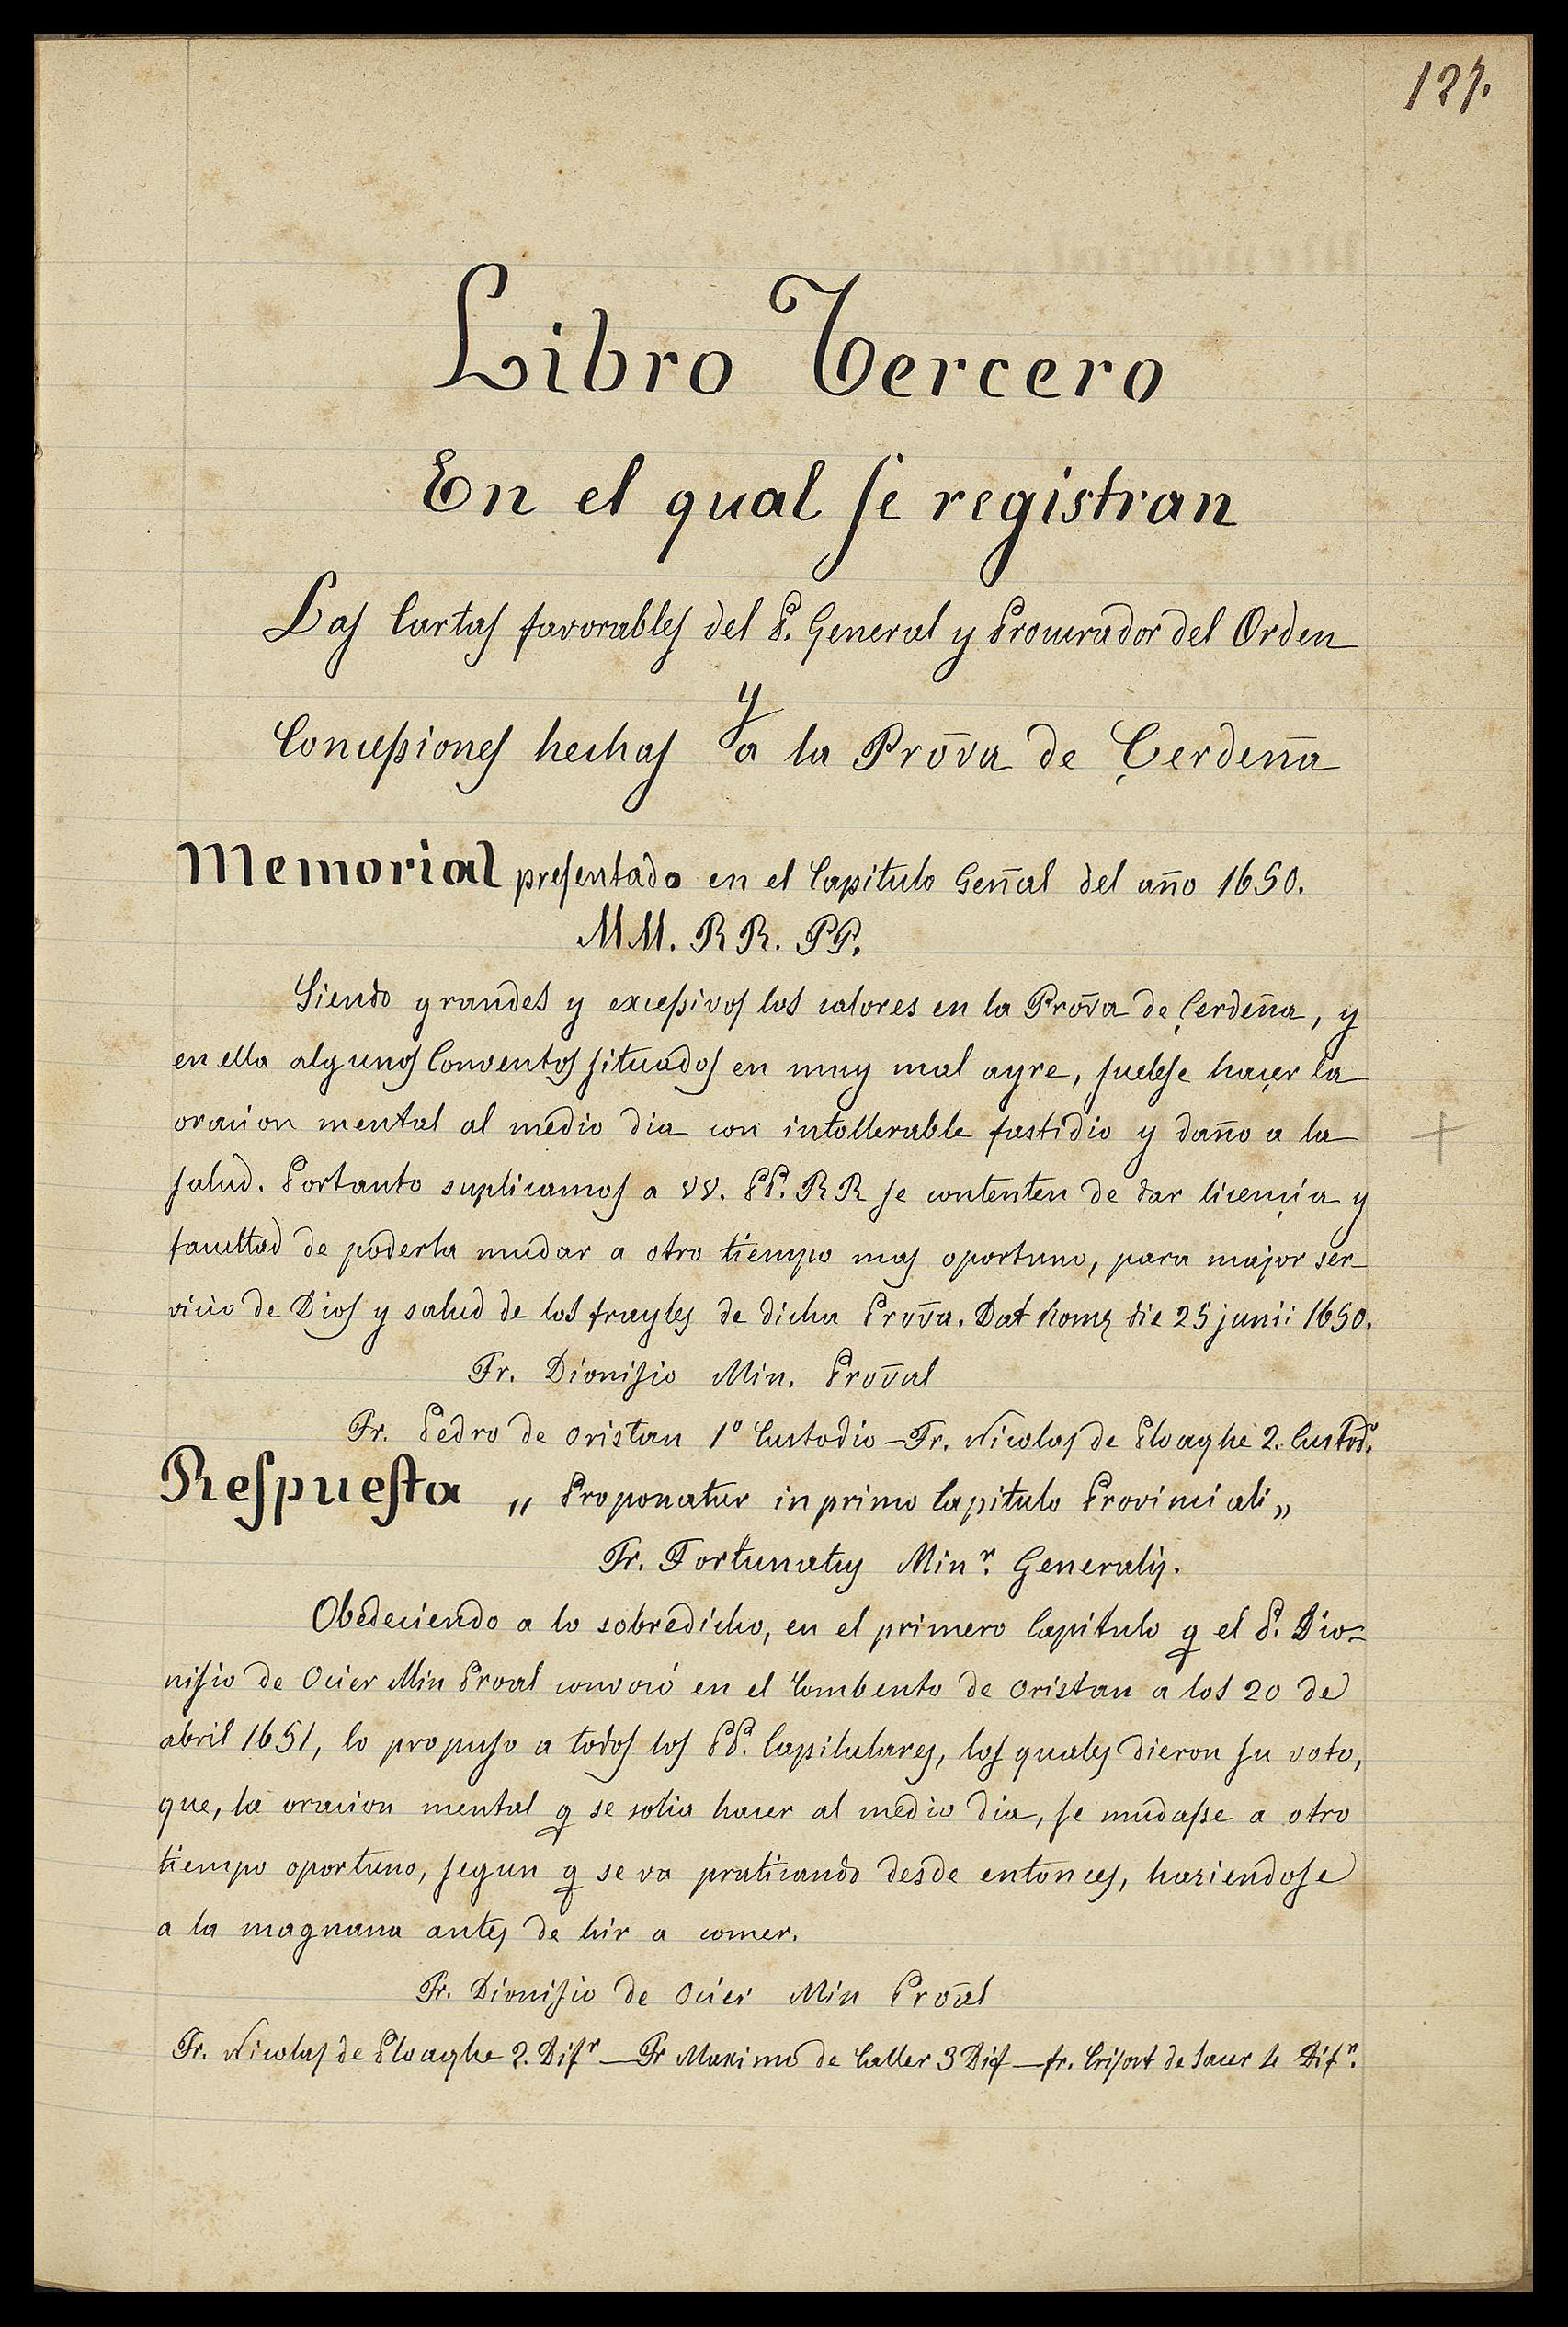 127.
Libro Tercero
En el qual se registran
Las Cartas favorables del P. General y Procurador del Orden
y
Concessiones hechas a la Prov̄a de Çerden̄a
Memorial presentado en el Capitulo Gen̄al del año 1650.
MM. RR. PP.
Siendo grandes y excessivos los calores en la Prov̄a de Çerdeña, y
en ella algunos Conventos situados en muy mal ayre, suelese haçer la
oracion mental al medio dia con intollerable fastidio y daño a la
salud. Portanto suplicamos a VV. PP. RR se contenten de dar licençia y
facultad de poderla mudar a otro tiempo mas oportuno, para major ser-
vicio de Dios y salud de los frayles de dicha Prov̄a. Dat Romę die 25 junii 1650.
Fr. Dionisio Min. Prov̄al
Fr. Pedro de Oristan 1º Custodio - Fr. Nicolas de Ploaghe 2. Custodº.
Respuesta „ Proponatur in primo Capitulo Provinciali „
Fr. Fortunatus Minʳ. Generalis.
Obedeciendo a lo sobredicho, en el primero Capitulo q el P. Dio-
nisio de Ocier Min Proval convocó en el Combento de Oristan a los 20 de
abril 1651, lo propuso a todos los PP. Capitulares, los quales dieron su voto,
que, la oracion mental q se solia hacer al medio dia, se mudasse a otro
tiempo oportuno, segun q se va praticando desde entonces, haziendose
a la magnana antes de hir a comer.
Fr. Dionisio de Ocier Min Prov̄al
Fr. Nicolas de Ploaghe 2. Difʳ — Fr Maximo de Caller 3 Dif — fr. Crisost de Sacer 4 Difʳ.